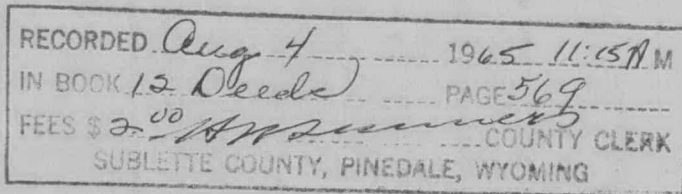 RECORDED Aug 4 1965 11:15 A M
IN BOOK 12 Deeds PAGE 569
FEES $ 2.00 COUNTY CLERK
SUBLETTE COUNTY, PINEDALE, WYOMING